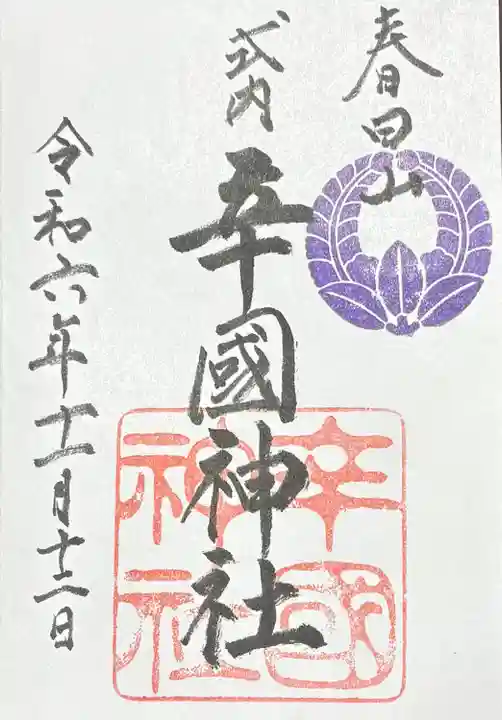 春日山
式内
辛國神社
辛國神社
令和六年十一月十二日